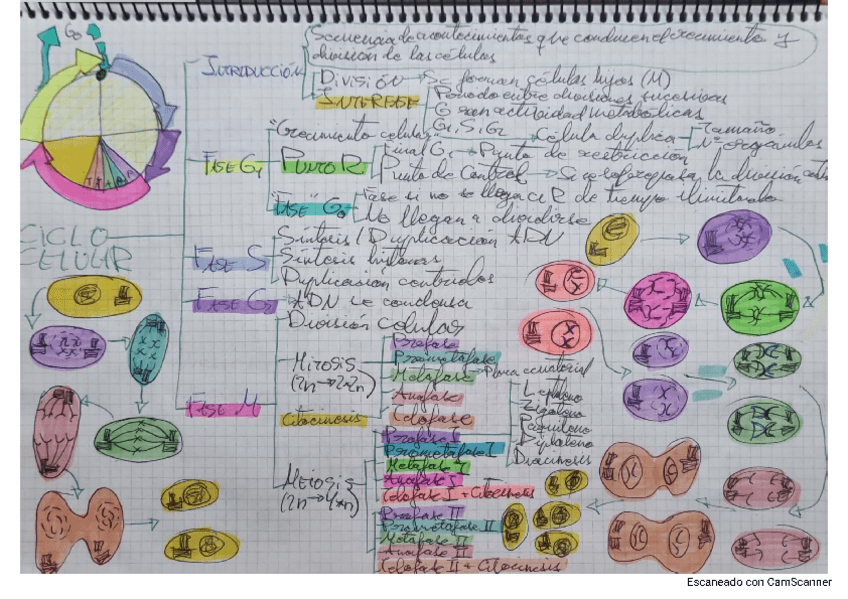 G₀
Secuencia de acontecimientos que conducen el crecimiento y
división de las células
INTRODUCCIÓN
División → Se forman células hijas (M)
INTERFASE
Periodo entre divisiones sucesivas
Gran actividad metabólicas
G₁, S, G₂ → Célula duplica
Tamaño
Nº orgánulos
FASE G₁
"Crecimiento celular"
PUNTO R
Final G₁ → Punto de restricción
Punto de Control → Se
la división
"FASE" G₀
Fase si no se llega a R de tiempo ilimitado
No llegan a dividirse
CICLO
CELULAR
FASE S
Síntesis / Duplicación ADN
Síntesis histonas
Duplicación centriolos
FASE G₂
ADN se condensa
FASE M
División celular
Mitosis
(2n → 2x2n)
Profase
Prometafase
Metafase → Placa ecuatorial
Anafase
Telofase
Citocinesis
Meiosis
(2n → 4xn)
Profase I
Leptoteno
Zigoteno
Paquiteno
Diploteno
Diacinesis
Prometafase I
Metafase I
Anafase I
Telofase I + Citocinesis
Profase II
Prometafase II
Metafase II
Anafase II
Telofase II + Citocinesis
Escaneado con CamScanner